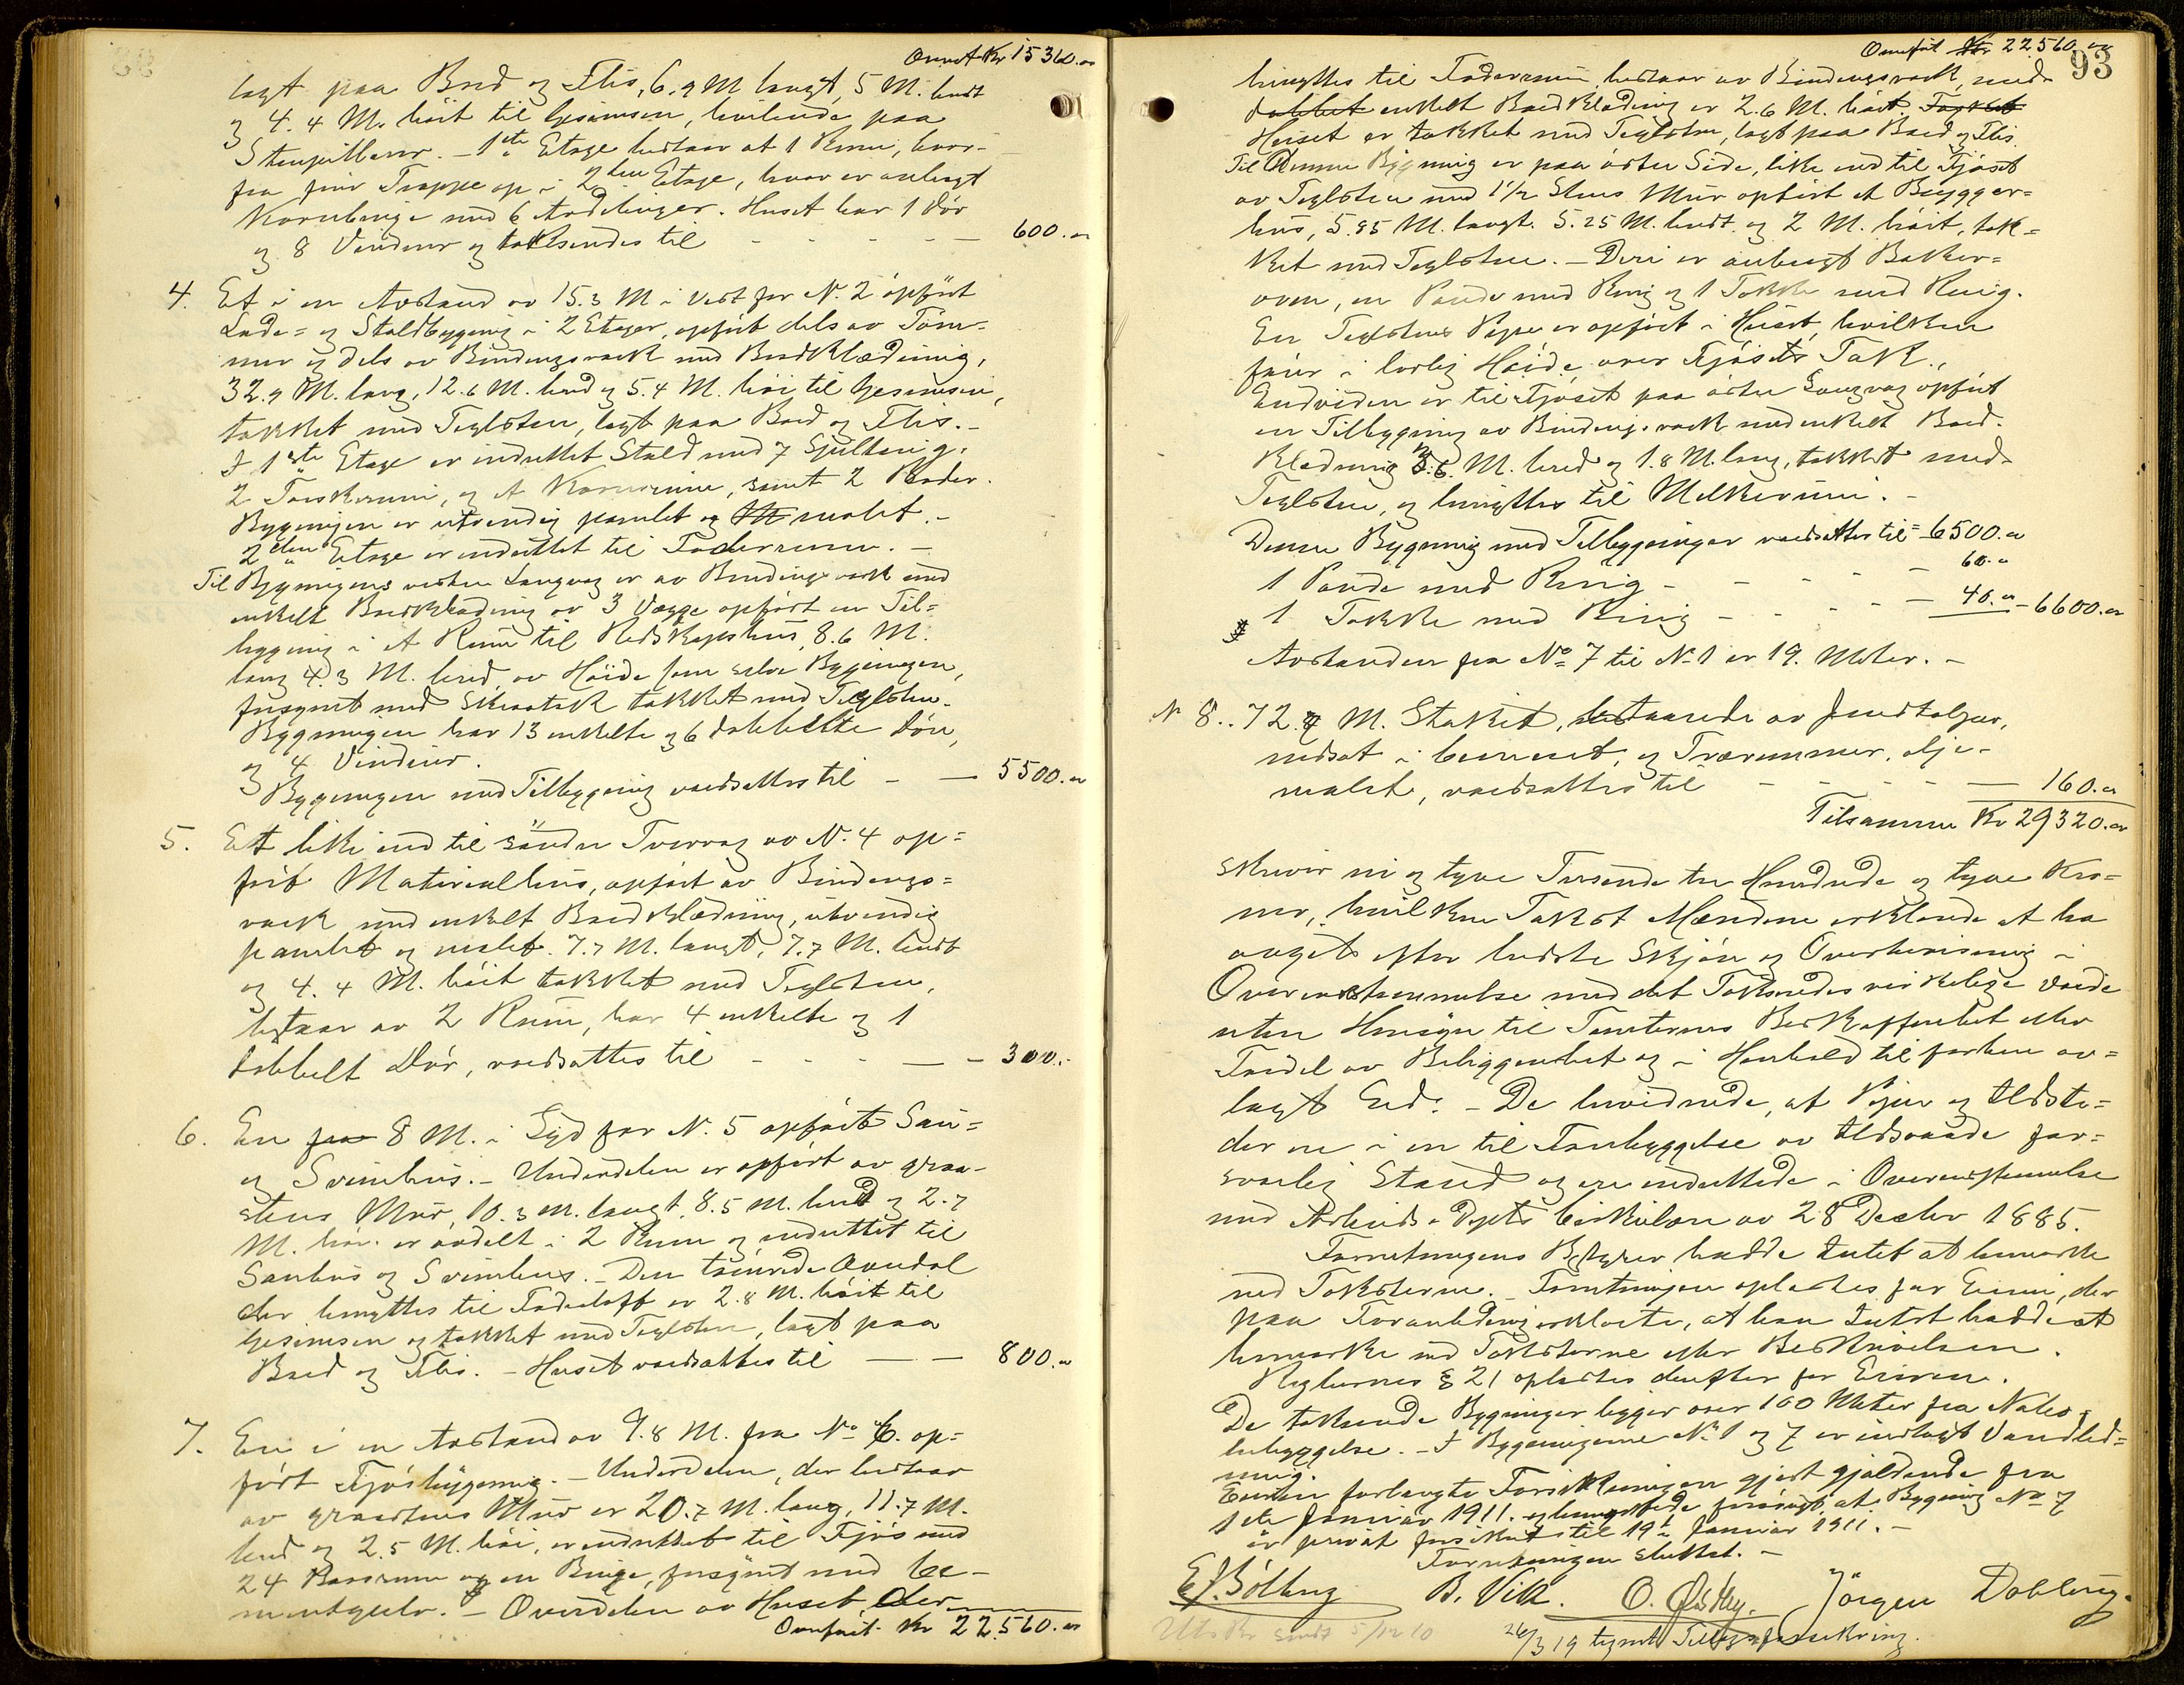 Overført Kr 15360.00
lagt paa Bord og Flis, 6.9 M langt, 5 M. bredt
og 4.4 M. høit til Gesimsen, hvilende paa
Stenpillarer. – 1ste Etage bestaar af 1 Rum, hvor-
fra fører Trappe op i 2den Etage, hvor er anbragt
Kornbinge med 6 Avdelinger. Huset har 1 Dør
og 8 Vinduer og takseredes til – – – – 600.00
4. Et i en Avstand av 15.3 M i Vest for N. 2 opført
Lade- og Staldbygning i 2 Etager, opført dels av Tøm-
mer og dels av Bindingsværk med Bordklædning,
32.9 M. lang, 12.6 M. bred og 5.4 M. høi til Gesimsen,
tækket med Taglsten, lagt paa Bord og Flis. –
I 1ste Etage er indrettet Stald med 7 Spiltaug,
2 Tærskerum, og et Kornrum, samt 2 Boder.
Bygningen er utvendig panelet og malet. –
2den Etage er indrettet til Foderrum. –
Til Bygningens vestre Langvæg er av Bindingsværk med
enkelt Bordklædning av 3 Vægge opført en Til=
bygning i et Rum til Redskapshus, 8.6 M.
lang 4.3 M. bred, av Høide som selve Bygningen,
forsynt med Skraatak tækket med Teglsten.
Bygningen har 13 enkelte og 6 dobbelte Døre,
og 4 Vinduer.
Bygningen med Tilbygning værdsattes til – – 5500.00
5. Ett like ind til søndre Tvervæg av N. 4 op=
ført Materialhus, opført av Bindings=
værk med enkelt Bordklædning, utvendig
panelet og malet. 7.7 M. langt, 7.7 M. bredt
og 4.4 M. høit tækket med Teglsten,
bestaar av 2 Rum, har 4 enkelte og 1
dobbelt Dør, værdsattes til – – – – 300.-
6. En 8 M. i Syd for N. 5 opført Sau=
og Svinehus. – Underdelen er opført av graa-
stens Mur, 10.3 M. langt, 8.5 M. bred og 2.7
M. høi. er avdelt i 2 Rum og indrettet til
Sauhus og Svinehus. – Den tømrede Overdel
der benyttes til Foderloft er 2.8 M. høit til
Gesimsen og tækket med Teglsten, lagt paa
Bord og Flis. – Huset værdsattes til – – 800.00
7. En i en Avstand av 9.8 M. fra No 6. op=
ført Fjøsbygning. – Underdelen, der bestaar
av graastens Mur er 20.7 M. lang, 11.7 M.
bred og 2.5 M. høi, er indrettet til Fjøs med
24 Baasrum og en Binge, forsynt med Ce-
mentgulv. – Overdelen av Huset, der
Overført Kr 22560.00
Overført Kr 22560.00
93
benyttes til Foderrum, bestaar av Bindingsværk, med
dobbet enkelt Bordklædning er 2.6 M. høit. Taket
Huset er tækket med Teglsten, lagt paa Bord og Flis
Til denne Bygning er paa østre Side, like ind til Fjøset
av Teglsten med 1½ Stens Mur opført et Brygger=
hus, 5.95 M. langt. 5.25 M. bredt og 2 M. høit, tæk=
ket med Teglsten. – Deri er anbragt Baker=
oven, en Pande med Ring og 1 Takke med Ring.
En Teglstens Pipe er opført i Huset, hvilken
fører i lovlig Høide over Fjøsets Tak.,
Endvidere er til Fjøset paa østre Langvæg opført
en Tilbygning av Bindingsværk med enkelt Bord-
klædning 3.6 M. bred og 1.8 M. lang, tækket med
Teglsten, og benyttes til Melkerum. –
Denne Bygning med Tilbygninger værdsattes til= 6500.00
1 Pande med Ring – – – – 60.00
1 Takke med Ring – – – – 40.00 – 6600.00
Avstanden fra No 7 til N. 1 er 19. Meter. –
N 8. . 72.4 M. Stakit, bestaaende av Jernstolper,
nedsat i Cement, og Trærammer, olje-
malet, værdsattes til – – – – 160.00
Tilsammen Kr 29320.00
skriver ni og tyve Tusende tre Hundrede og tyve Kro=
ner, hvilken Takst Mændene erklærede at ha
avgit efter bedste Skjøn og Overbevisning i
Overensstemmelse med det Takseredes virkelige Værdi
uten Hensyn til Tomternes Beskaffenhet eller
Fordel av Beliggenhet og i Henhold til forhen av=
lagt Ed. – De bevidnede, at Piper og Ildste=
der ere i en til Forebyggelse av Ildsvaade for=
svarlig Stand og ere indrettede i Overensstemmelse
med Arbeids-Dpts Cirkulære av 28 Decbr 1885.
Forretningens Bestyrer hadde Intet at bemærke
ved Taksterne. – Forretningen oplæstes for Eieren, der
paa Foranledning erklærte, at han Intet hadde at
bemærke ved Taksterne eller Beskrivelsen.
Reglernes § 21 oplæstes derefter for Eieren.
De takserede Bygninger ligger over 100 Meter fra Nabo=
bebyggelse. – I Bygningerne No 1 og 7 er indlagt Vandled=
ning.
Eieren forlangte Forsikringen gjort gjældende fra
1ste Januar 1911. og bemærkede forøvrigt, at Bygning No 7
er privat forsikret til 19de Januar 1911. –
Forretningen sluttet. –
B. Vik. O. Østby. Jörgen Dobloug.
Utskr sendt 5/12 10
26/3 19 tegnet Tillægsforsikring.